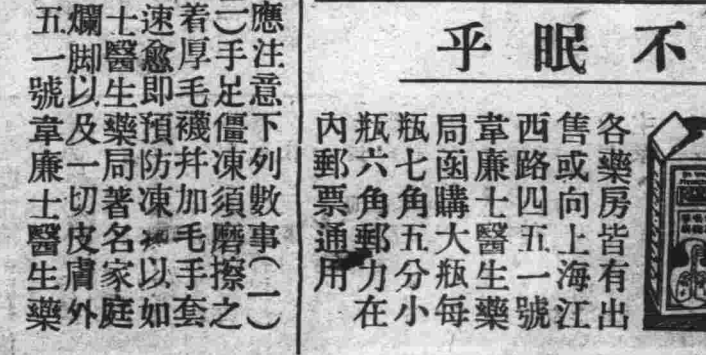 不眠乎
各藥房皆有出
售或向上海江
西路四五一號
韋廉士醫生藥
局函購大瓶每
瓶七角五分小
瓶六角郵力在
內郵票通用
應注意下列數事(一)
二)手足僵凍須磨擦之
着厚毛襪幷加毛手套
速愈即預防凍以如
士醫生藥局著名家庭
爛脚以及一切皮膚外
五一號韋廉士醫生藥